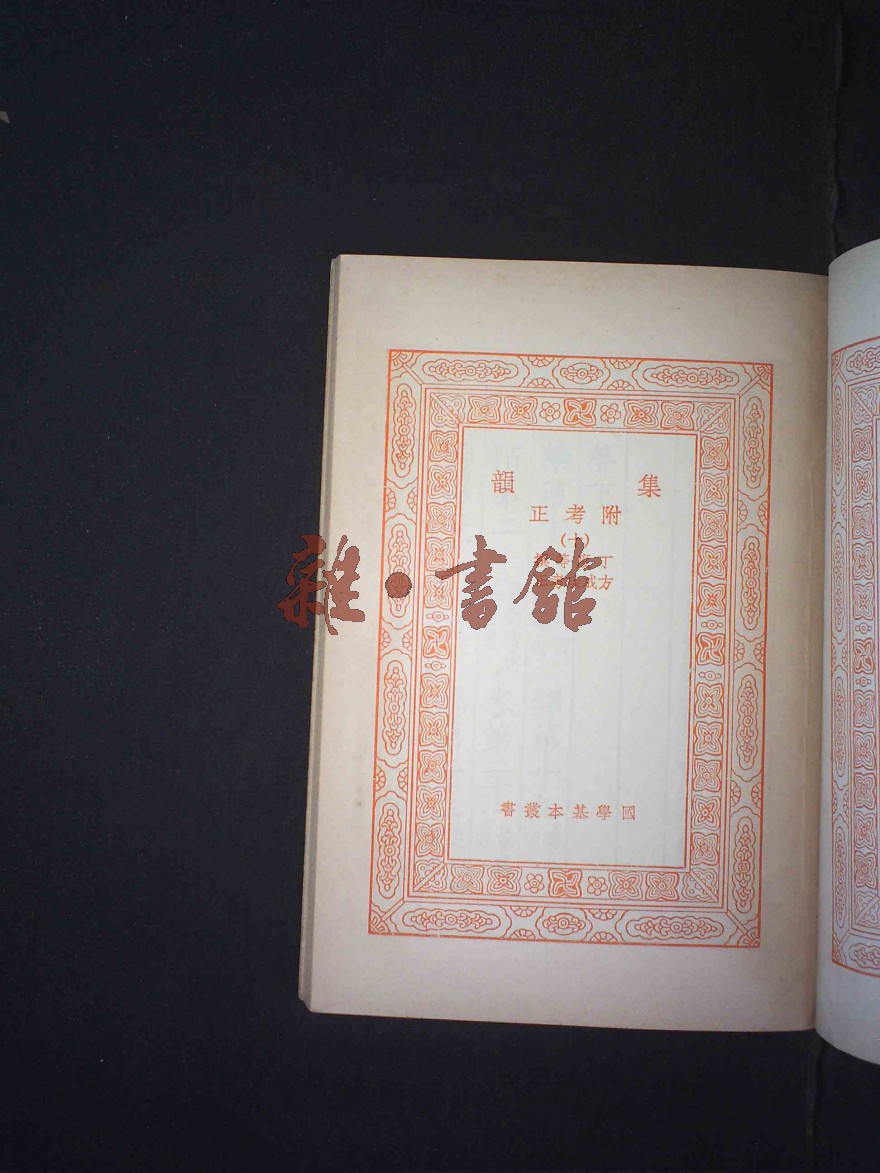 集韻
附考正
(十)
丁
方
國學基本叢書
雜·書館